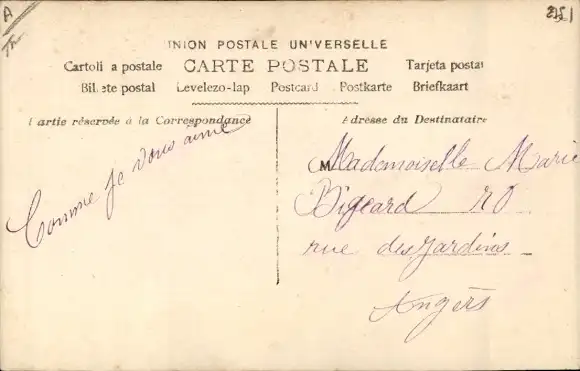 A
UNION POSTALE UNIVERSELLE
Cartolina postale CARTE POSTALE Tarjeta postal
Bilhete postal Levelezo-lap Postcard Postkarte Briefkaart
Partie réservée à la Correspondance
Adresse du Destinataire
Comme je vous aime
Mademoiselle Marie
Bigeard 20
rue des Jardins
Angers